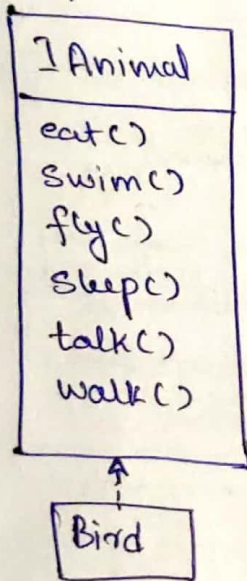 IAnimal
eat()
swim()
fly()
sleep()
talk()
walk()
Bird